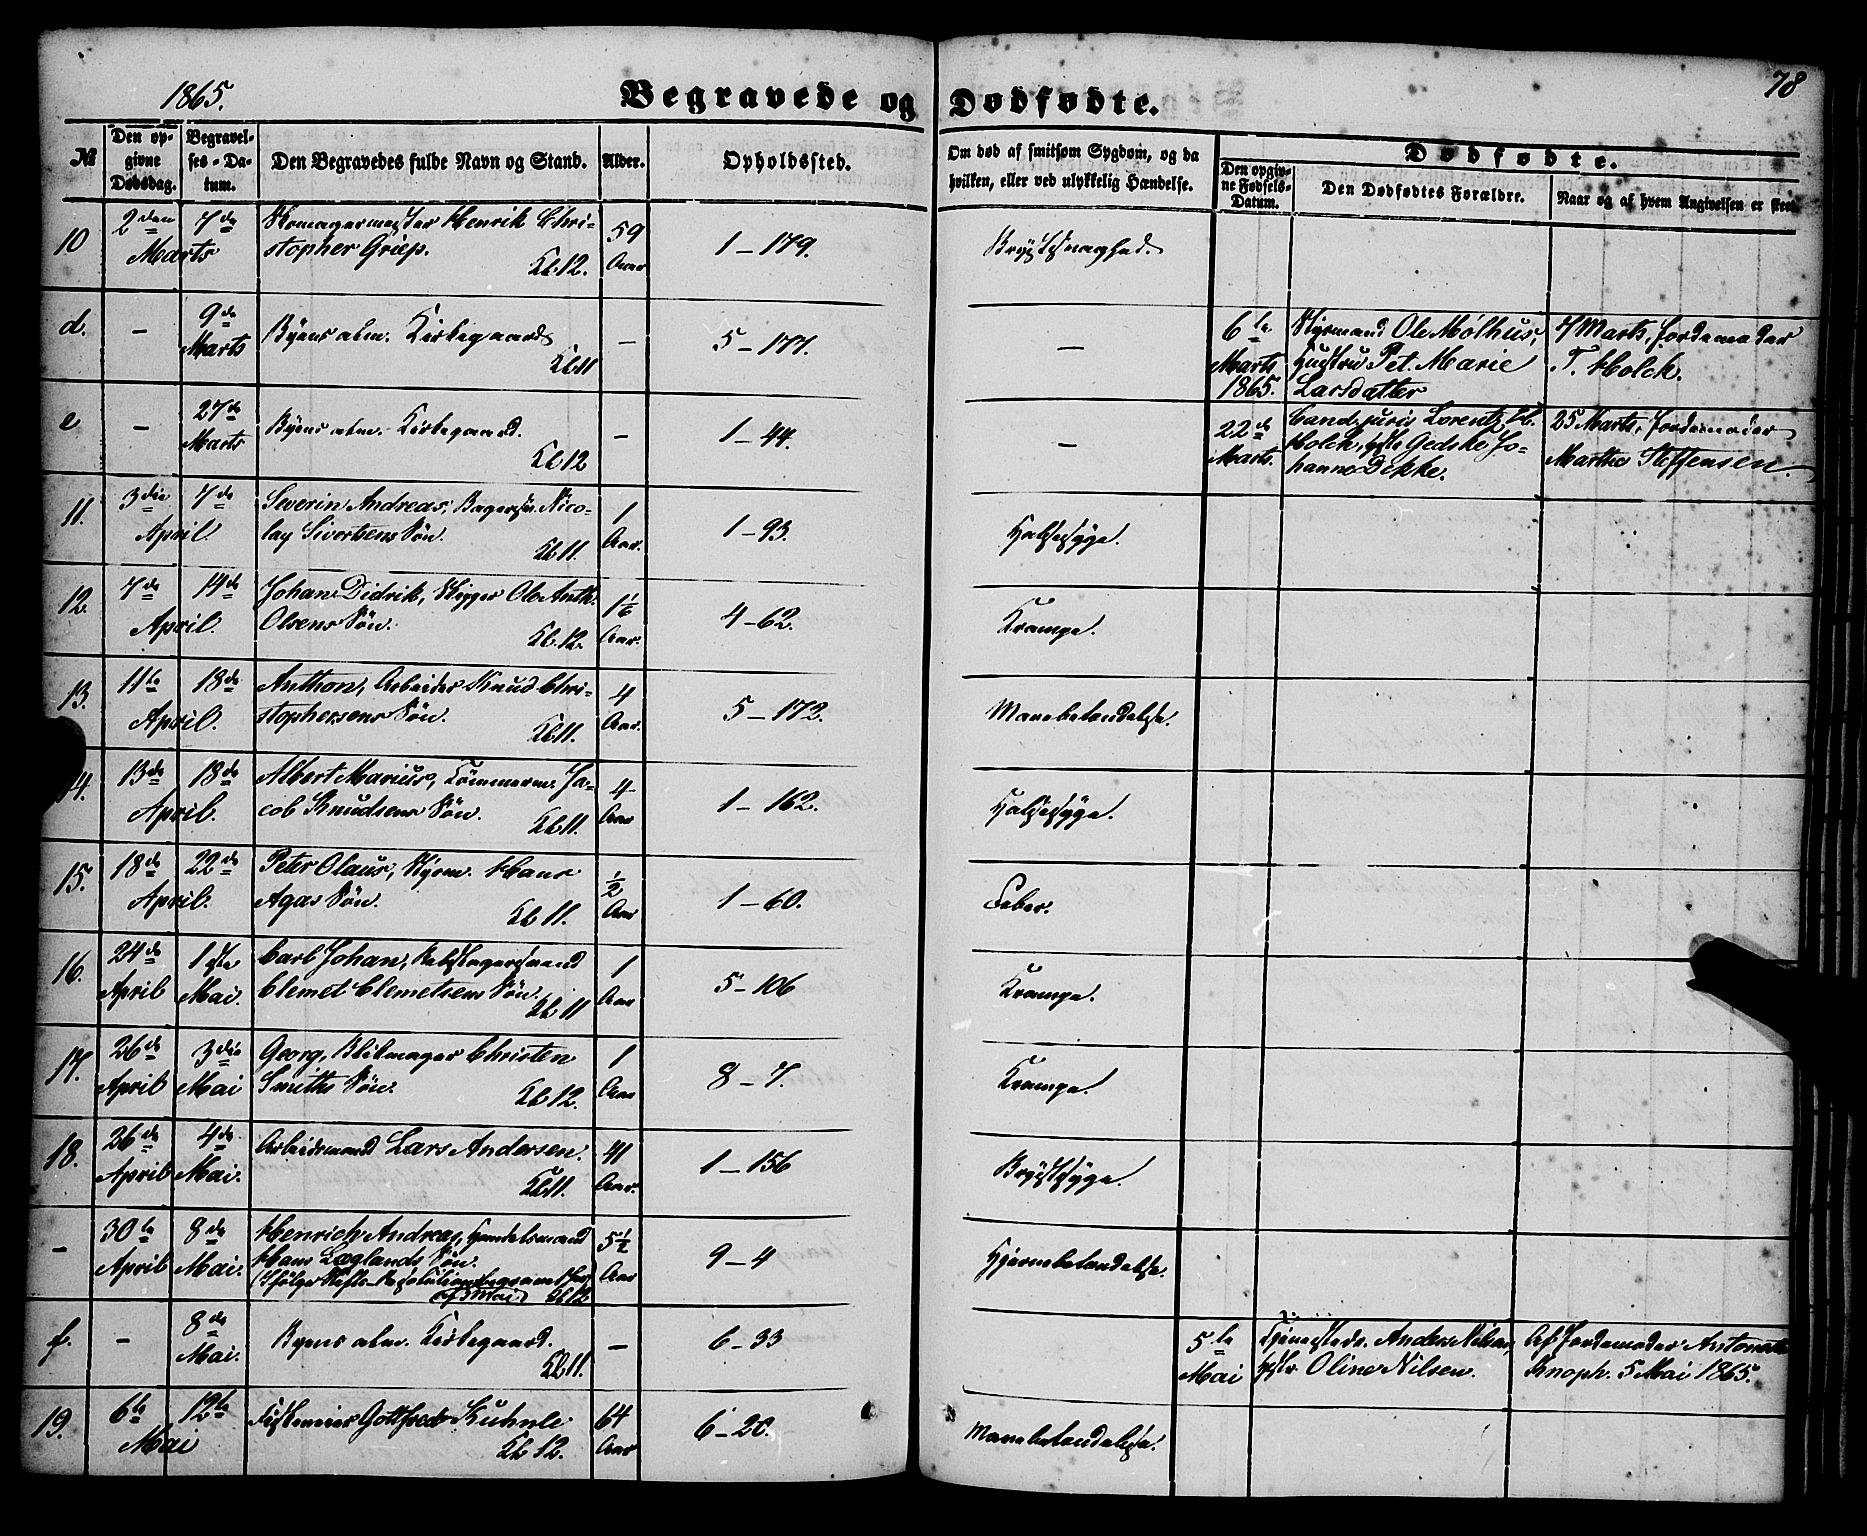 1865.
Begravede og Dødfødte.
78
№
Den op-
givne
Dødsdag.
Begravel-
ses-Da-
tum.
Den Begravedes fulde Navn og Stand.
Alder.
Opholdssted.
Om død af smitsom Sygdom, og da
hvilken, eller ved ulykkelig Hændelse.
Dødfødte.
Den opgiv-
ne Fødsels-
Datum.
Den Dødfødtes Forældre.
Naar og af hvem Angivelsen er skeet.
10
2den
7de
Marts
Skomagermester Henrik Chri-
stopher Griep.
Kl. 12.
59
Aar
1 – 179.
Brystsvaghed.
d.
–
9de
Marts
Byens alm. Kirkegaard
Kl. 11
–
5 – 177.
–
6te
Marts
1865.
Styrmand Ole Mølhus,
Hustru Pet. Marie
Larsdatter
7 Marts, Jordemoder
T. Holck.
e
–
27de
Marts
Byens alm. Kirkegaard.
Kl 12
–
1 – 44.
–
22de
Marts.
Cand. juris Lorentz
Holck, Gedske Jo-
hanne Dekke.
25 Marts, Jordemoder
Marthe Steffensen.
11.
3die
7de
April
Severin Andreas, Bagersv. Nico-
lay Sivertsens Søn.
Kl. 11.
1
Aar.
1 – 93.
Halssyge.
12.
7de
14de
April.
Johan Didrik, Skipper Ole Anth.
Olsens Søn.
Kl. 12.
1 1/6
Aar.
4 – 62.
Krampe.
13.
11te
18de
April.
Anthon, Arbeider Knud Chri-
stophersens Søn.
Kl. 11.
4
Aar.
5 – 172.
Mavebetændelse.
14.
13de
18de
April.
Albert Marius, Tømmerm. Ja-
cob Knudsens Søn.
Kl. 11.
4
Aar
1 – 162.
Halssyge.
15.
18de
22de
April.
Peter Olaus, Styrm. Hans
Agas Søn.
Kl 11.
1/2
Aar
1 – 60.
Feber.
16.
24de
April
1ste
Mai.
Carl Johan, Rebslagersvend
Clemet Clemetsens Søn.
Kl. 11
1
Aar
5 – 106
Krampe.
17.
26de
April
3die
Mai
Georg, Blikmager Christen
Smiths Søn.
Kl. 12.
1
Aar
8 – 7.
Krampe.
18.
26de
April
4de
Mai.
Arbeidsmand Lars Andersen.
Kl. 11.
41
Aar.
1 – 156
Brystsyge.
–
30te
April
8de
Mai.
Henrich Andreas, Handelsmand
Hans Løglands Søn.
(Ifølge Stifts-Resolution
af 3 Mai)
Kl. 12
5 1/2
Aar
9 – 4
Hjernebetændelse.
f.
–
8de
Mai.
Byens alm. Kirkegaard.
Kl. 11.
–
6 – 33
5te
Mai
Anders Nilsen,
Oline Nilsen.
Af Jordemoder Antonette
Knoph. 5 Mai 1865.
19.
6te
12te
Mai
Gottfred Kühnle
Kl 12.
64
Aar
6 – 20.
Mavebetændelse.